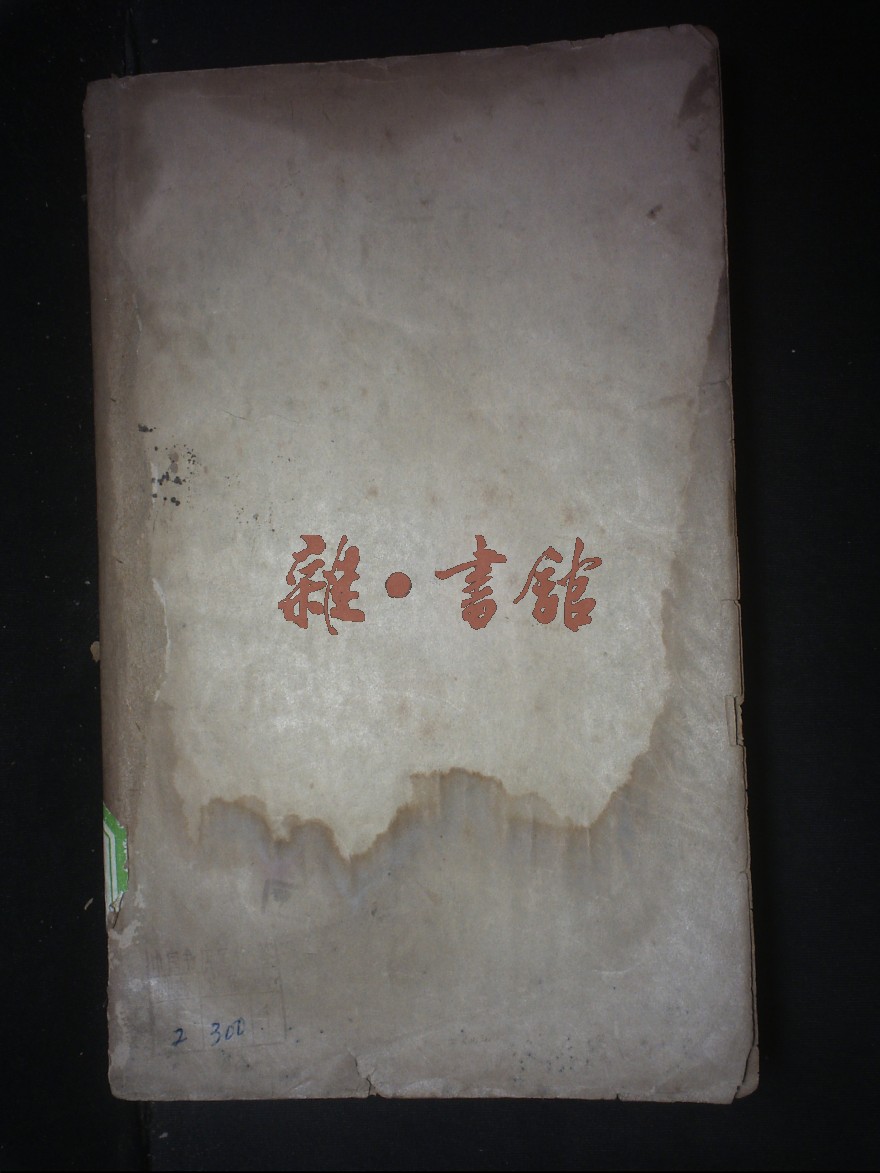 雜·書館
2 300